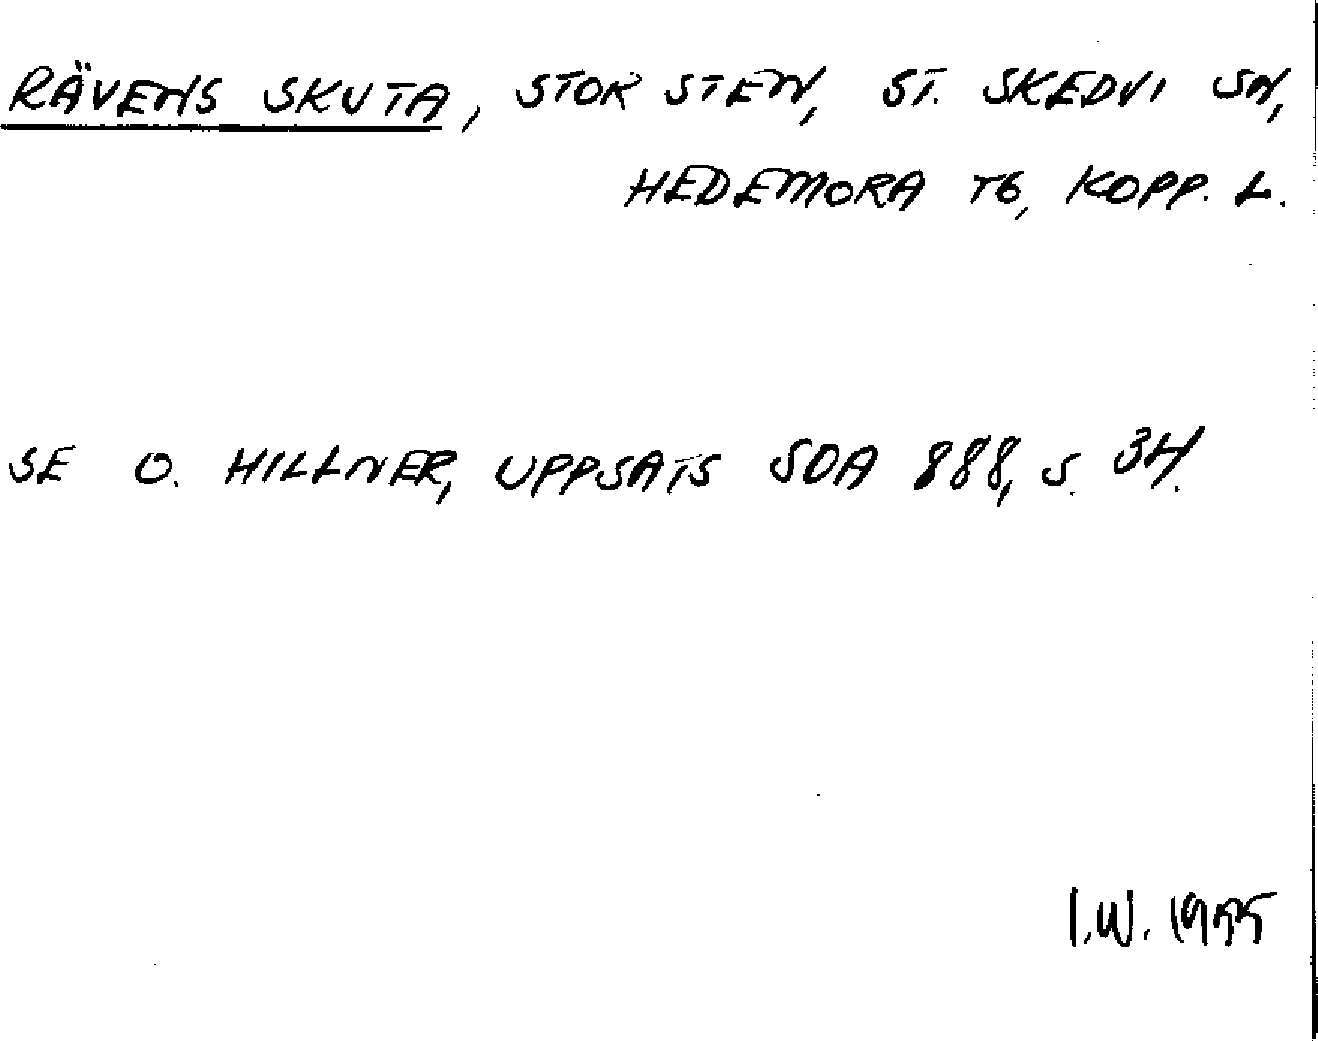 RÄVENS SKUTA, STOR STEN, ST. SKEDVI SN,
HEDEMORA TG, KOPP. L.
SE O. HILLNER, UPPSATS SOA 888, S. 34.
I.W. 1955